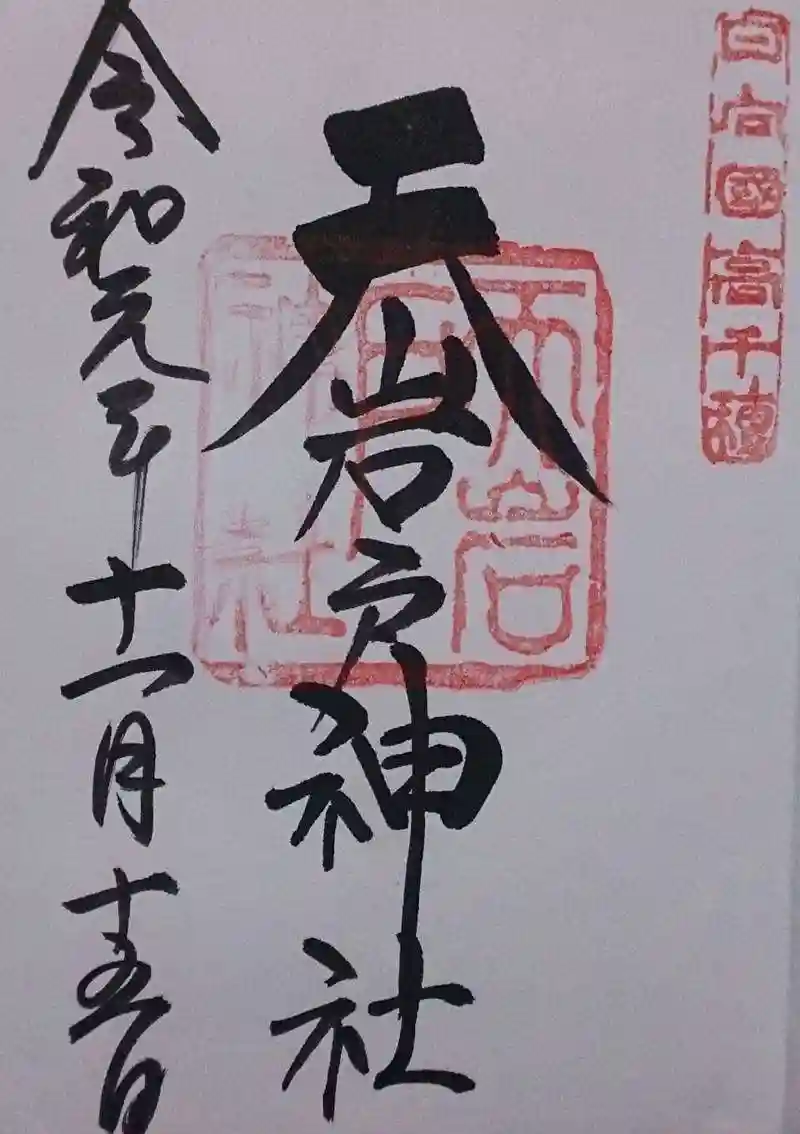 日向國高千穂
天岩戸神社
天岩
戸
神社
令和元年十一月十五日